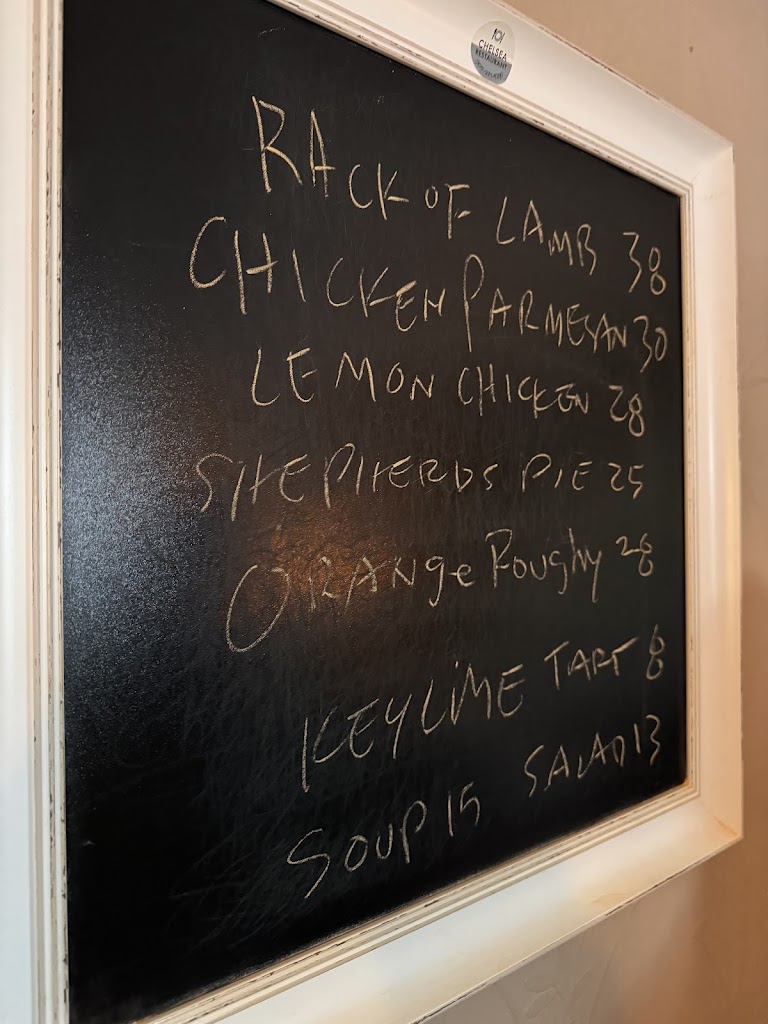 CHELSEA
RESTAURANT
RACK OF LAMB 38
CHICKEN PARMESAN 30
LEMON CHICKEN 28
SHEPHERDS PIE 25
ORANge Roughy 28
KEY LIME TART 8
SOUP 15 SALAD 13